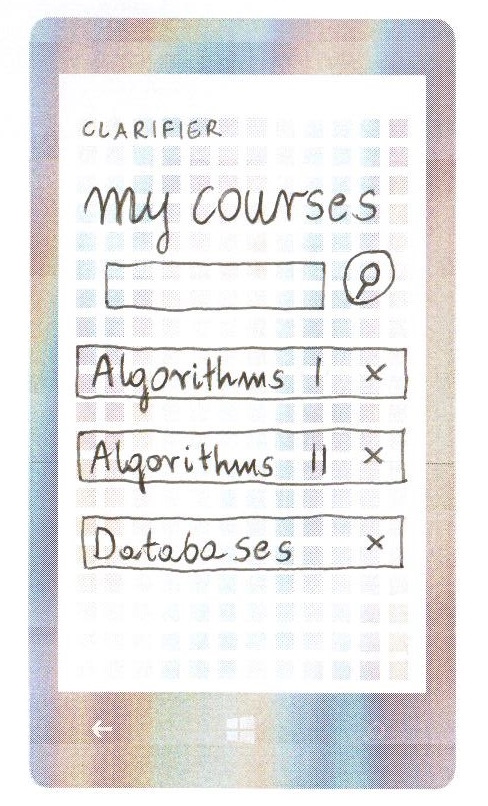 CLARIFIER
my courses
Algorithms I ×
Algorithms II ×
Databases ×